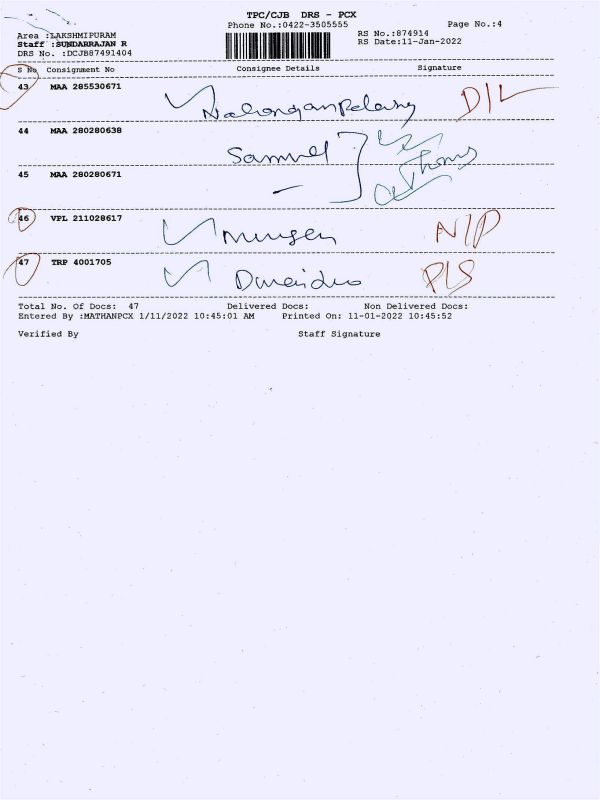 TPC/CJB DRS - PCX
Phone No.:0422-3505555
Page No.:4
Area :LAKSHMIPURAM
RS No.:874914
Staff :SUNDARRAJAN R
RS Date:11-Jan-2022
DRS No. :DCJB87491404
S No Consignment No Consignee Details Signature
43 MAA 285530671
D/L
44 MAA 280280638
Samuel
45 MAA 280280671
46 VPL 211028617
N/P
47 TRP 4001705
PLS
Total No. Of Docs: 47 Delivered Docs: Non Delivered Docs:
Entered By :MATHANPCX 1/11/2022 10:45:01 AM Printed On: 11-01-2022 10:45:52
Verified By Staff Signature